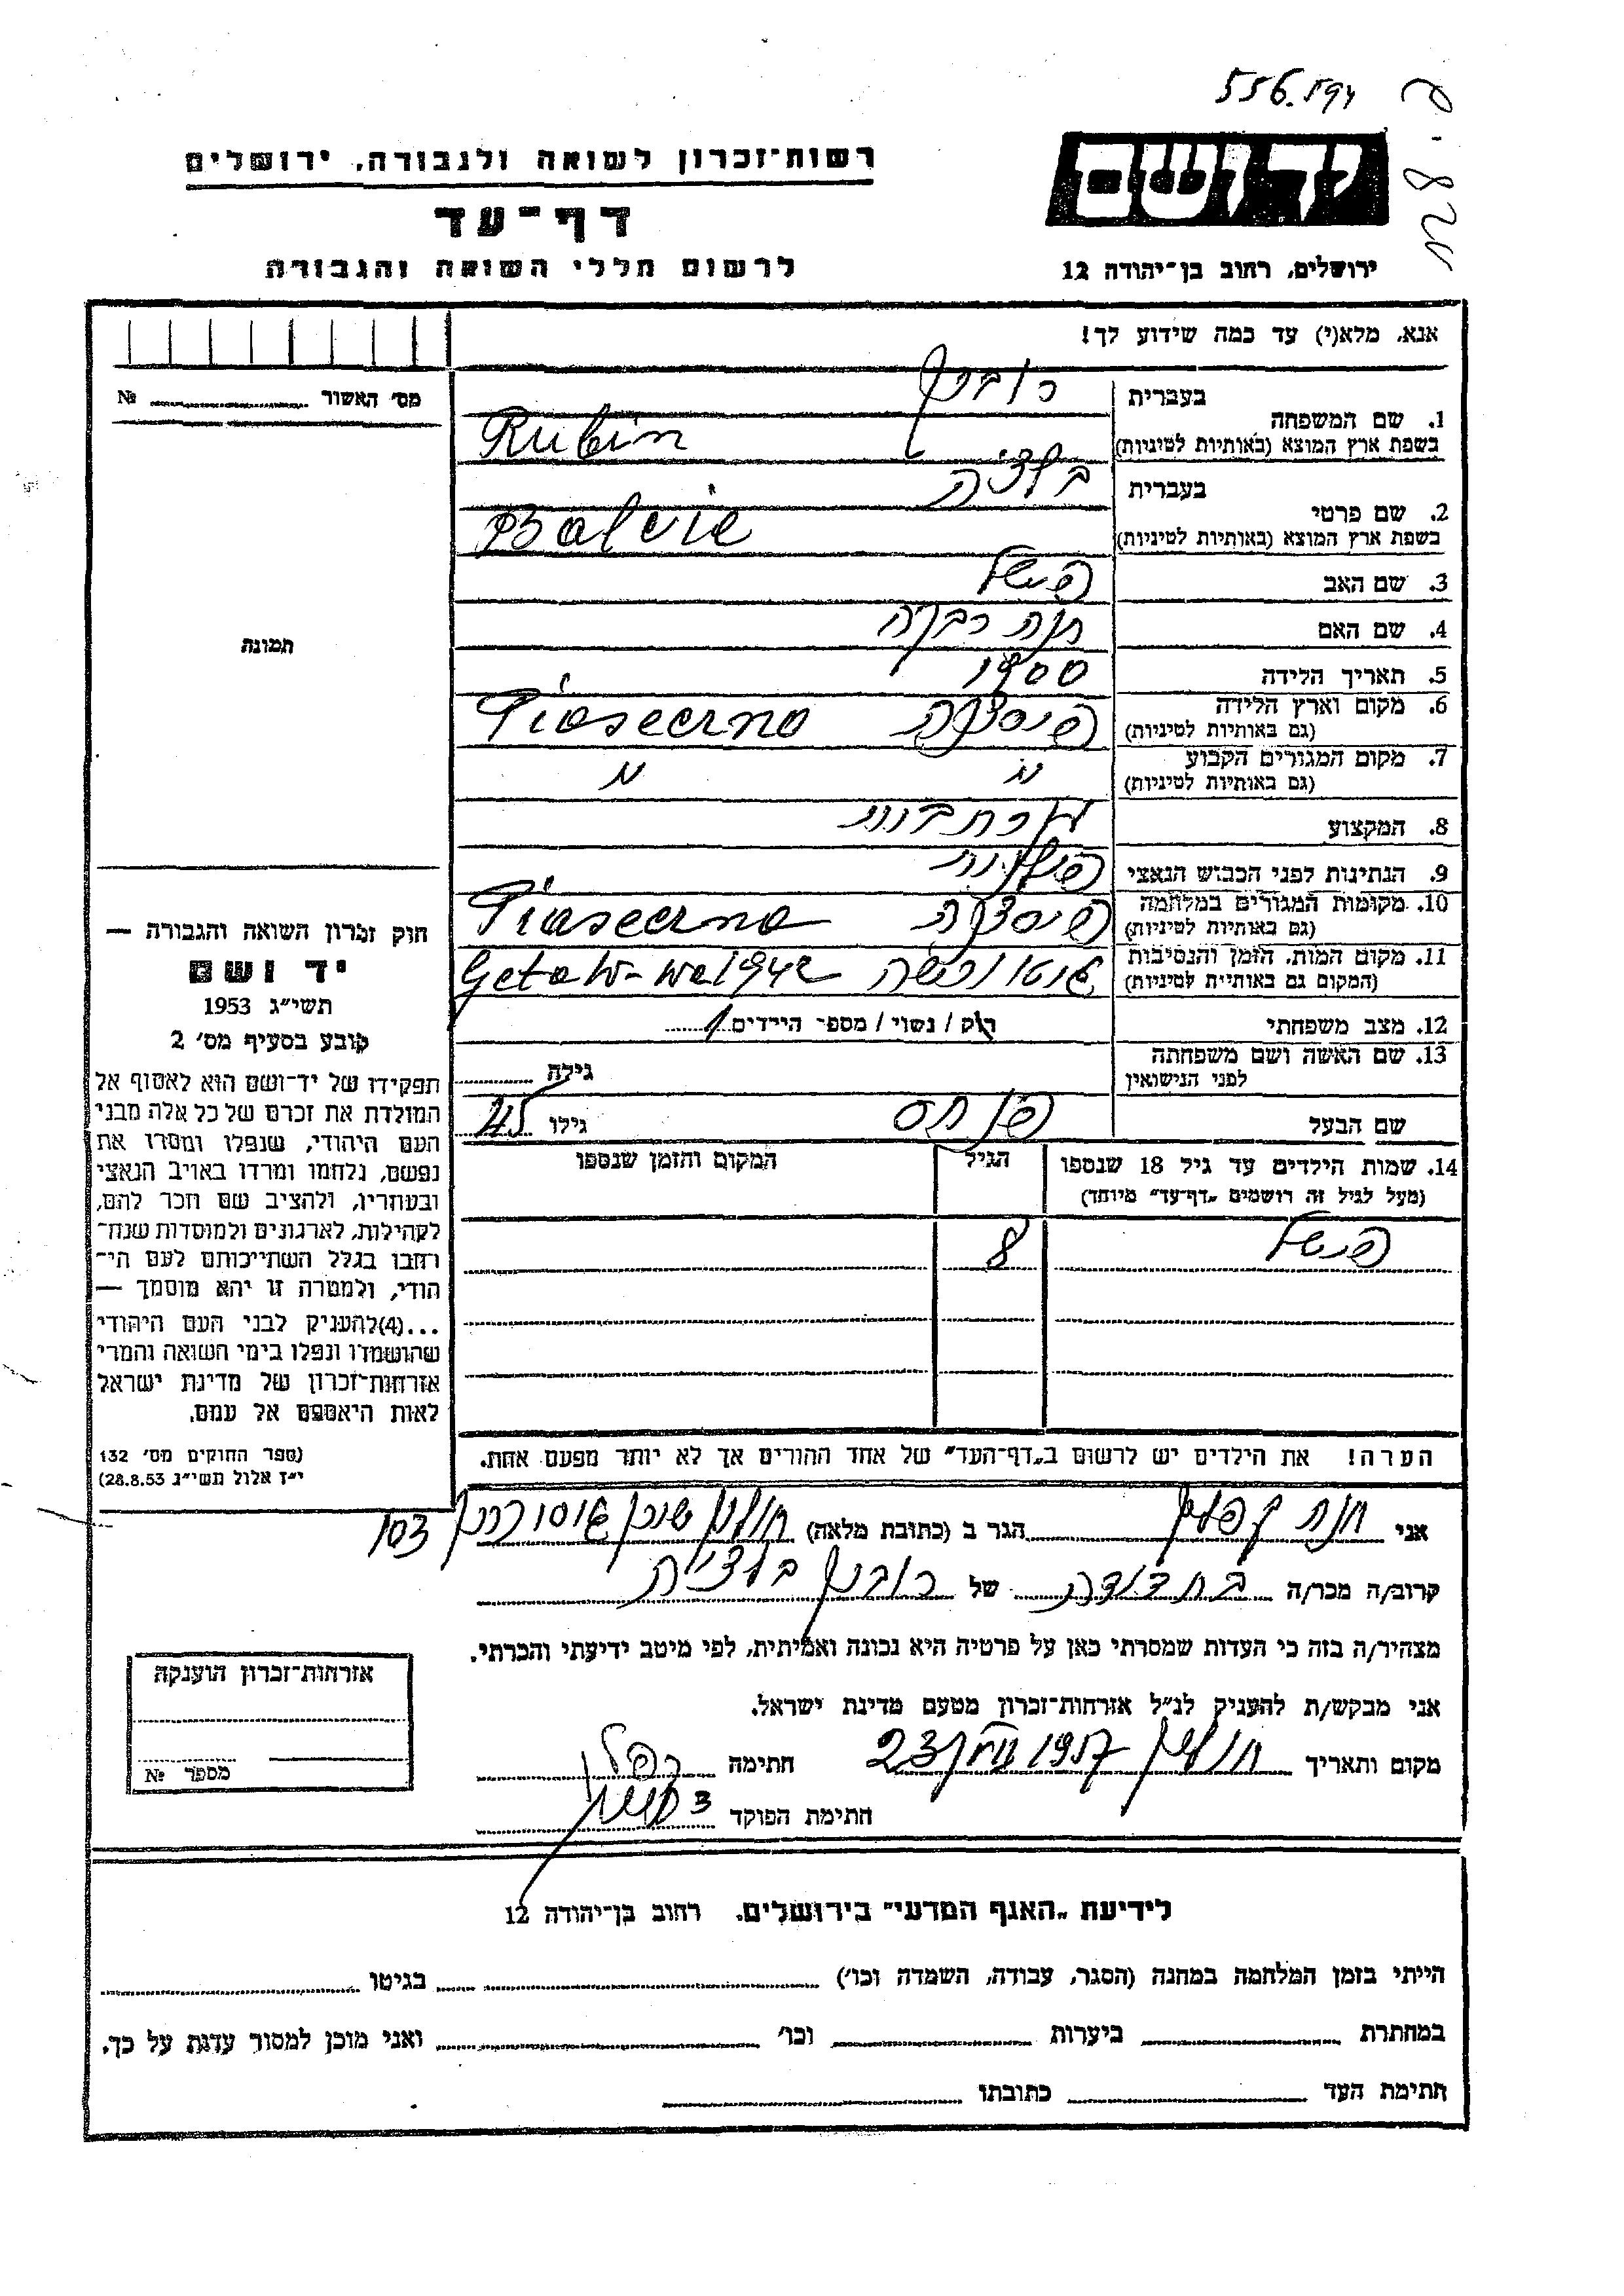 556.594
רשות־זכרון לשואה ולגבורה, ירושלים
יד ושם
דף־עד
לרשום חללי השואה והגבורה
ירושלים, רחוב בן־יהודה 12
אנא, מלא(י) עד כמה שידוע לך!
מס׳ האשור № 
1. שם המשפחה
בעברית רובין
בשפת ארץ המוצא (באותיות לטיניות) Rubin
2. שם פרטי
בעברית בלציה
בשפת ארץ המוצא (באותיות לטיניות) Balcie
3. שם האב פישל
4. שם האם חנה רבקה
5. תאריך הלידה 1900
6. מקום וארץ הלידה
(גם באותיות לטיניות) פיסצנה Piasecrno
7. מקום המגורים הקבוע
(גם באותיות לטיניות) " "
8. המקצוע
9. הנתינות לפני הכבוש הנאצי פולנית
10. מקומות המגורים במלחמה
(גם באותיות לטיניות) פיסצנה Piasecrno
11. מקום המות, הזמן והנסיבות
(המקום גם באותיית לטיניות) גיטו ורשה 1942
12. מצב משפחתי רוק / נשוי / מספר הילדים 1
13. שם האשה ושם משפחתה
לפני הנישואין גילה
שם הבעל פנחס גילו 45
14. שמות הילדים עד גיל 18 שנספו הגיל המקום והזמן שנספו
(מעל לגיל זה רושמים „דף־עד” מיוחד)
פישל 8
הערה! את הילדים יש לרשום ב„דף־העד” של אחד ההורים אך לא יותר מפעם אחת.
תמונה
חוק זכרון השואה והגבורה —
יד ושם
תשי״ג 1953
קובע בסעיף מס׳ 2
תפקידו של יד־ושם הוא לאסוף אל
המולדת את זכרם של כל אלה מבני
העם היהודי, שנפלו ומסרו את
נפשם, נלחמו ומרדו באויב הנאצי
ובעוזריו, ולהציב שם וזכר להם,
לקהילות, לארגונים ולמוסדות שנח־
רבו בגלל השתייכותם לעם הי־
הודי, ולמטרה זו יהא מוסמך —
...(4)להעניק לבני העם היהודי
שהושמדו ונפלו בימי השואה והמרי
אזרחות־זכרון של מדינת ישראל
לאות היאספם אל עמם.
(ספר החוקים מס׳ 132
י״ז אלול תשי״ג 28.8.53)
אני חנה הגר ב (כתובת מלאה) חולון שיכון 103
קרוב/ה מכר/ה בת דודה של רובין בלציה
מצהיר/ה בזה כי העדות שמסרתי כאן על פרטיה היא נכונה ואמיתית, לפי מיטב ידיעתי והכרתי.
אני מבקש/ת להעניק לנ״ל אזרחות־זכרון מטעם מדינת ישראל.
מקום ותאריך חולון 23 1957 חתימה
חתימת הפוקד
אזרחות־זכרון הוענקה
מספר №
לידיעת „האגף המדעי” בירושלים, רחוב בן־יהודה 12
הייתי בזמן המלחמה במחנה (הסגר, עבודה, השמדה וכו׳) בגיטו
במחתרת ביערות וכו׳ ואני מוכן למסור עדות על כך.
חתימת העד כתובתו